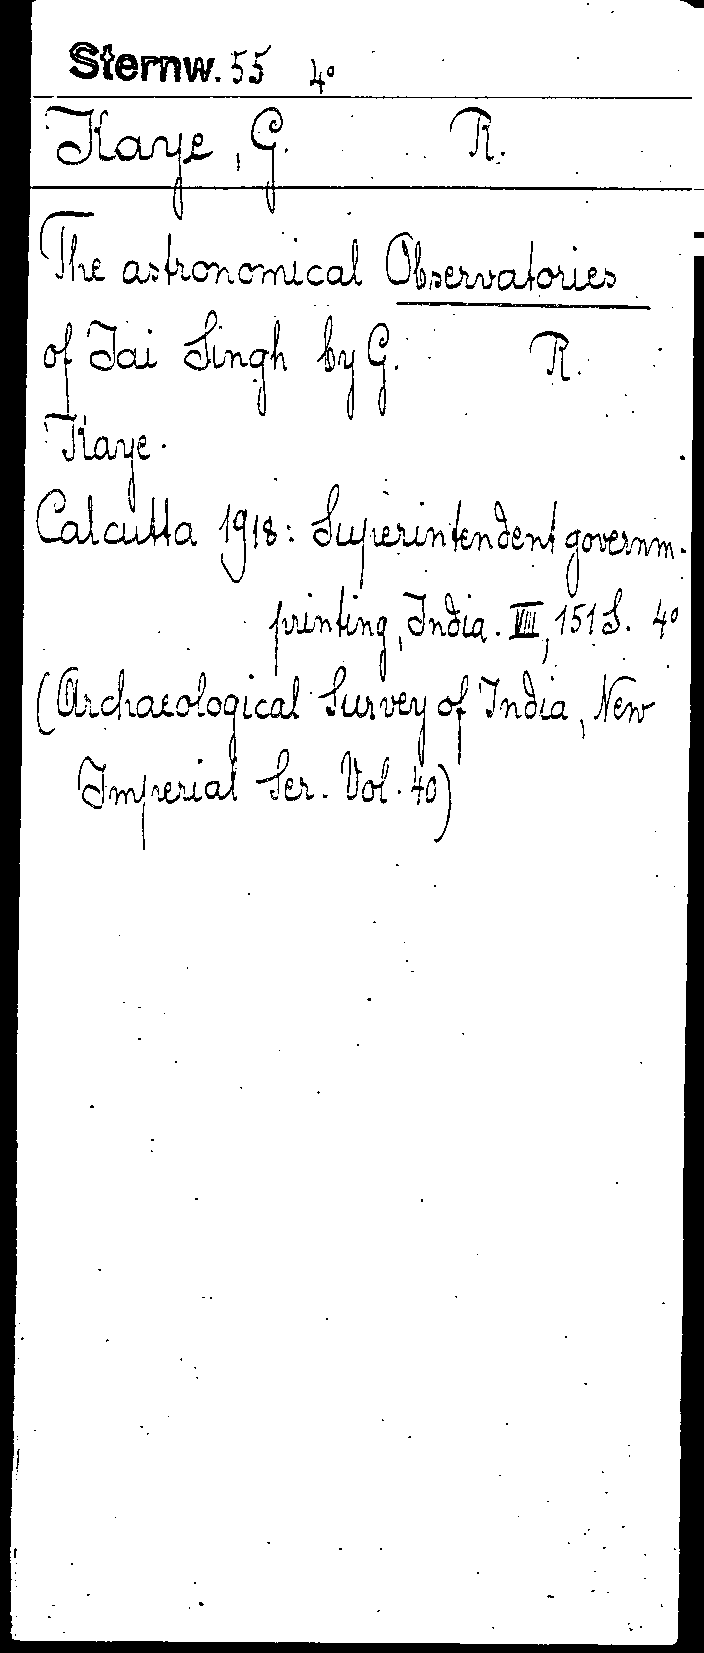 Sternw. 55 4°
Kaye, G. R.
The astronomical Observatories
of Jai Singh by G. R.
Kaye.
Calcutta 1918: Superintendent governm.
printing, India. VIII, 151 S. 4°
(Archaeological Survey of India, New
Imperial Ser. Vol. 40)